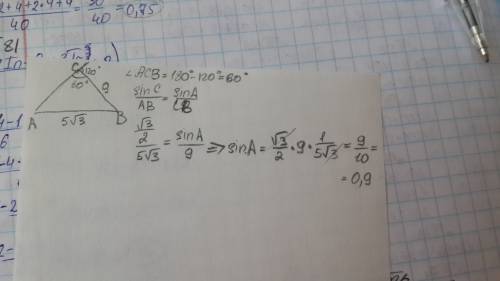 2+4+2*4+4/40 = 30/40 = 0,75
C 120°
60° 9
A 5√3 B
∠ACB = 180°-120° = 60°
sin C/AB = sin A/CB
√3/2/5√3 = sin A/9 => sin A = √3/2 * 9 * 1/5√3 = 9/10 =
= 0,9